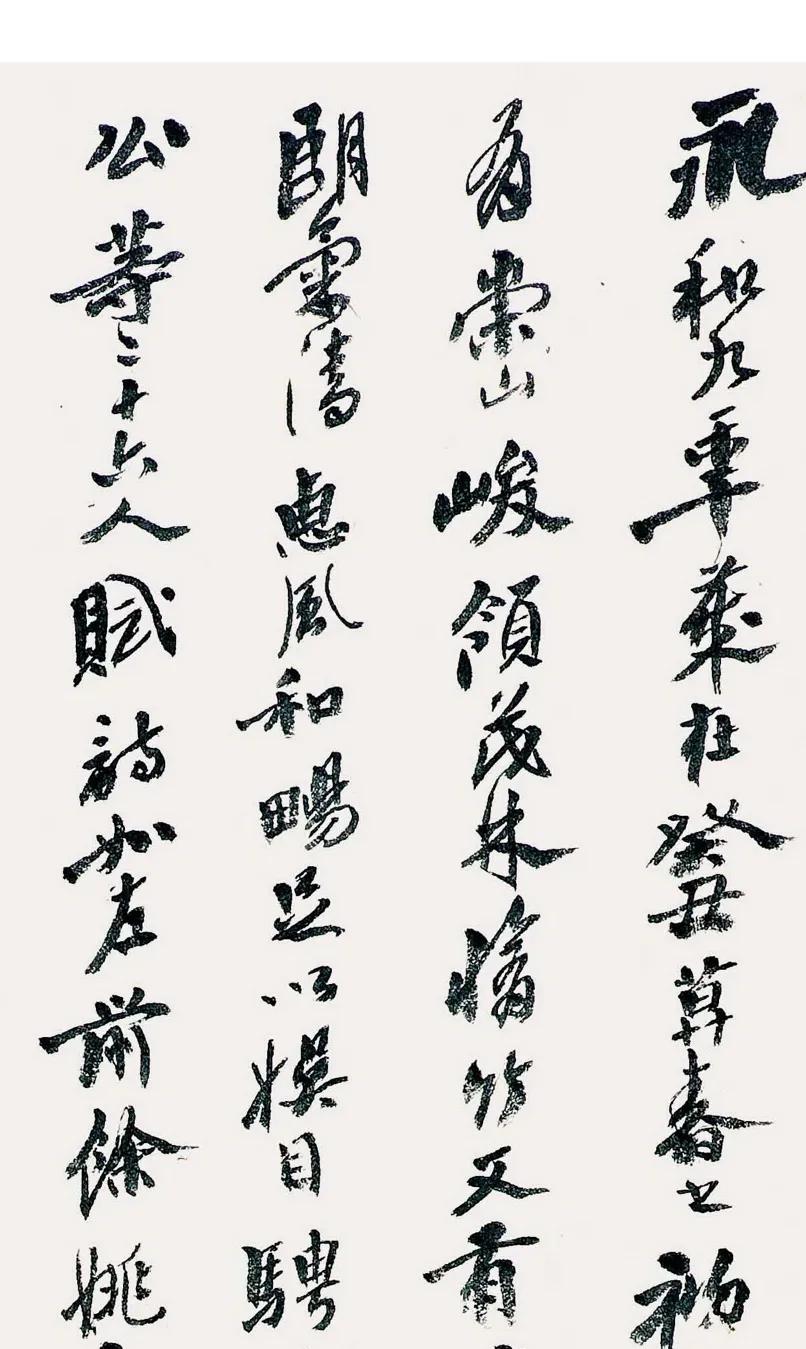 永和九年歲在癸丑暮春之初
有崇山峻領茂林脩竹又有
朗氣清惠風和暢足以娛目騁
公等二十六人賦詩如左前餘姚